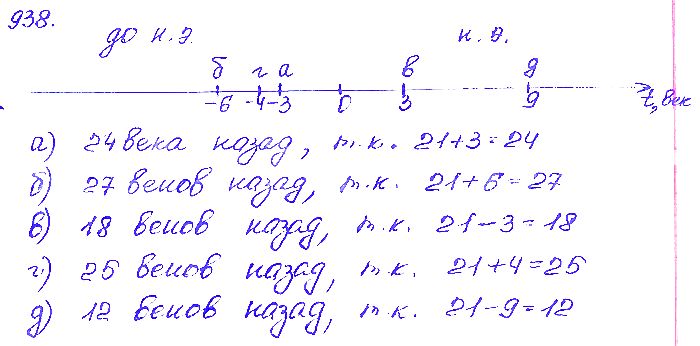 938.
до н.э. н.э.
б г а в д
-6 -4 -3 0 3 9 t, век
а) 24 века назад, т.к. 21+3=24
б) 27 веков назад, т.к. 21+6=27
в) 18 веков назад, т.к. 21-3=18
г) 25 веков назад, т.к. 21+4=25
д) 12 веков назад, т.к. 21-9=12